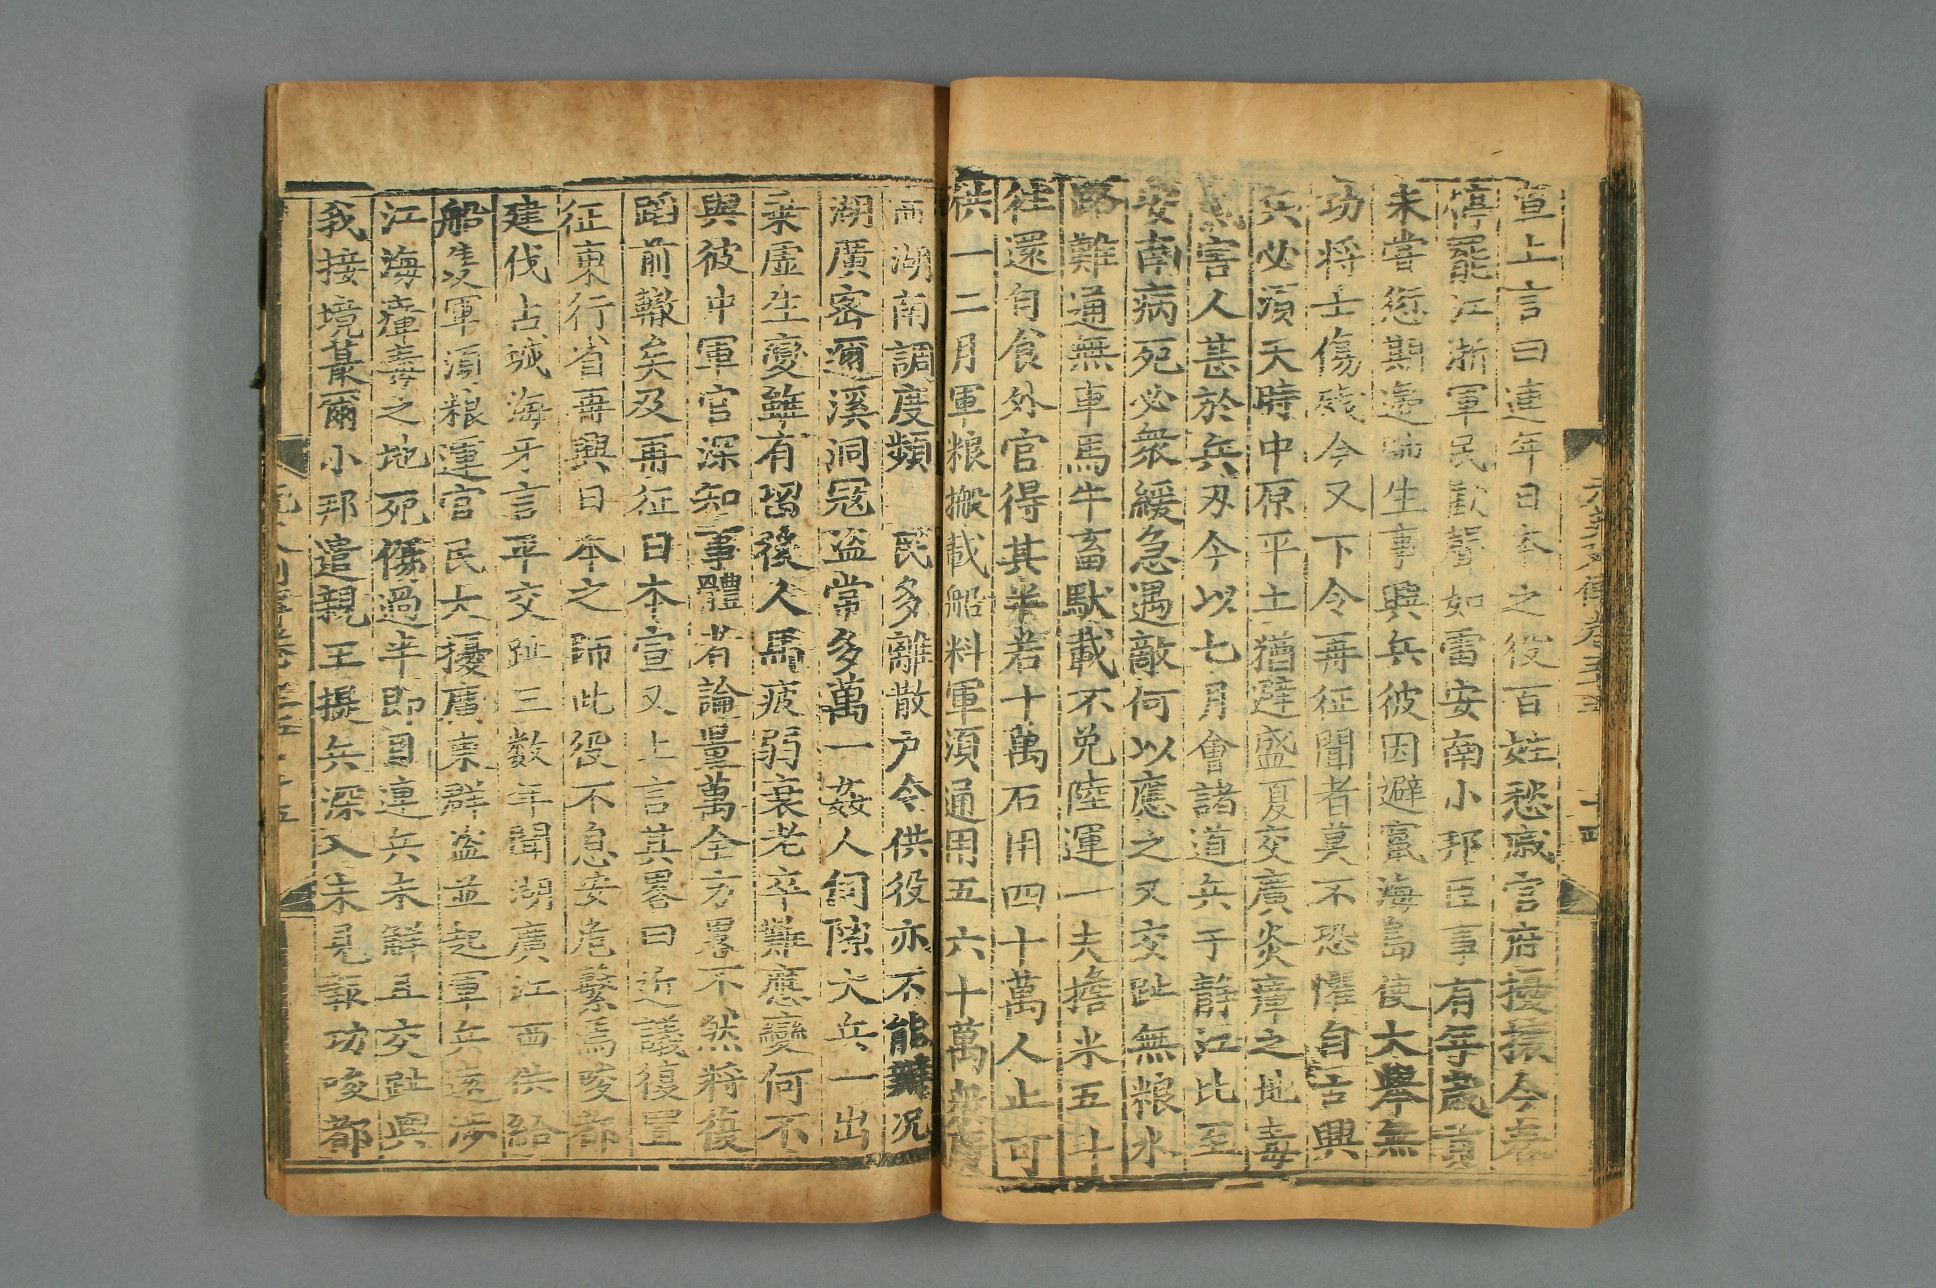 宣上言曰連年日本之役百姓愁戚官府擾攘今春
停罷江浙軍民歡聲如雷安南小邦臣事有年歲貢
未嘗愆期邊帥生事興兵彼因避竄海島使大舉無
功将士傷殘今又下令再征聞者莫不恐懼自古興
兵必須天時中原平土猶避盛夏交廣炎瘴之地毒
氣害人甚於兵刃今以七月會諸道兵于静江比至
安南病死必衆緩急遇敵何以應之又交趾無粮水
路難通無車馬牛畜馱載不免陸運一夫擔米五斗
往還自食外官得其半若十萬石用四十萬人止可
供一二月軍粮搬載船料軍須通用五六十萬衆廣
西湖南調度頻 民多離散户令供役亦不能辦况
湖廣密邇溪洞冦盗常多萬一姦人伺隙大兵一出
乗虛生變雖有留後人馬疲弱衰老卒難應變何不
與彼中軍官深知事體者論量萬全方畧不然将復
蹈前轍矣及再征日本宣又上言其畧曰近議復置
征東行省再興日本之師此役不息安危繫焉唆都
建伐占城海牙言平交趾三数年間湖廣江西供給
船隻軍須粮運官民大擾廣東群盗並起軍兵遠涉
江海瘴毒之地死傷過半即目連兵未解且交趾與
我接境蕞爾小邦遣親王提兵深入未見報功唆都